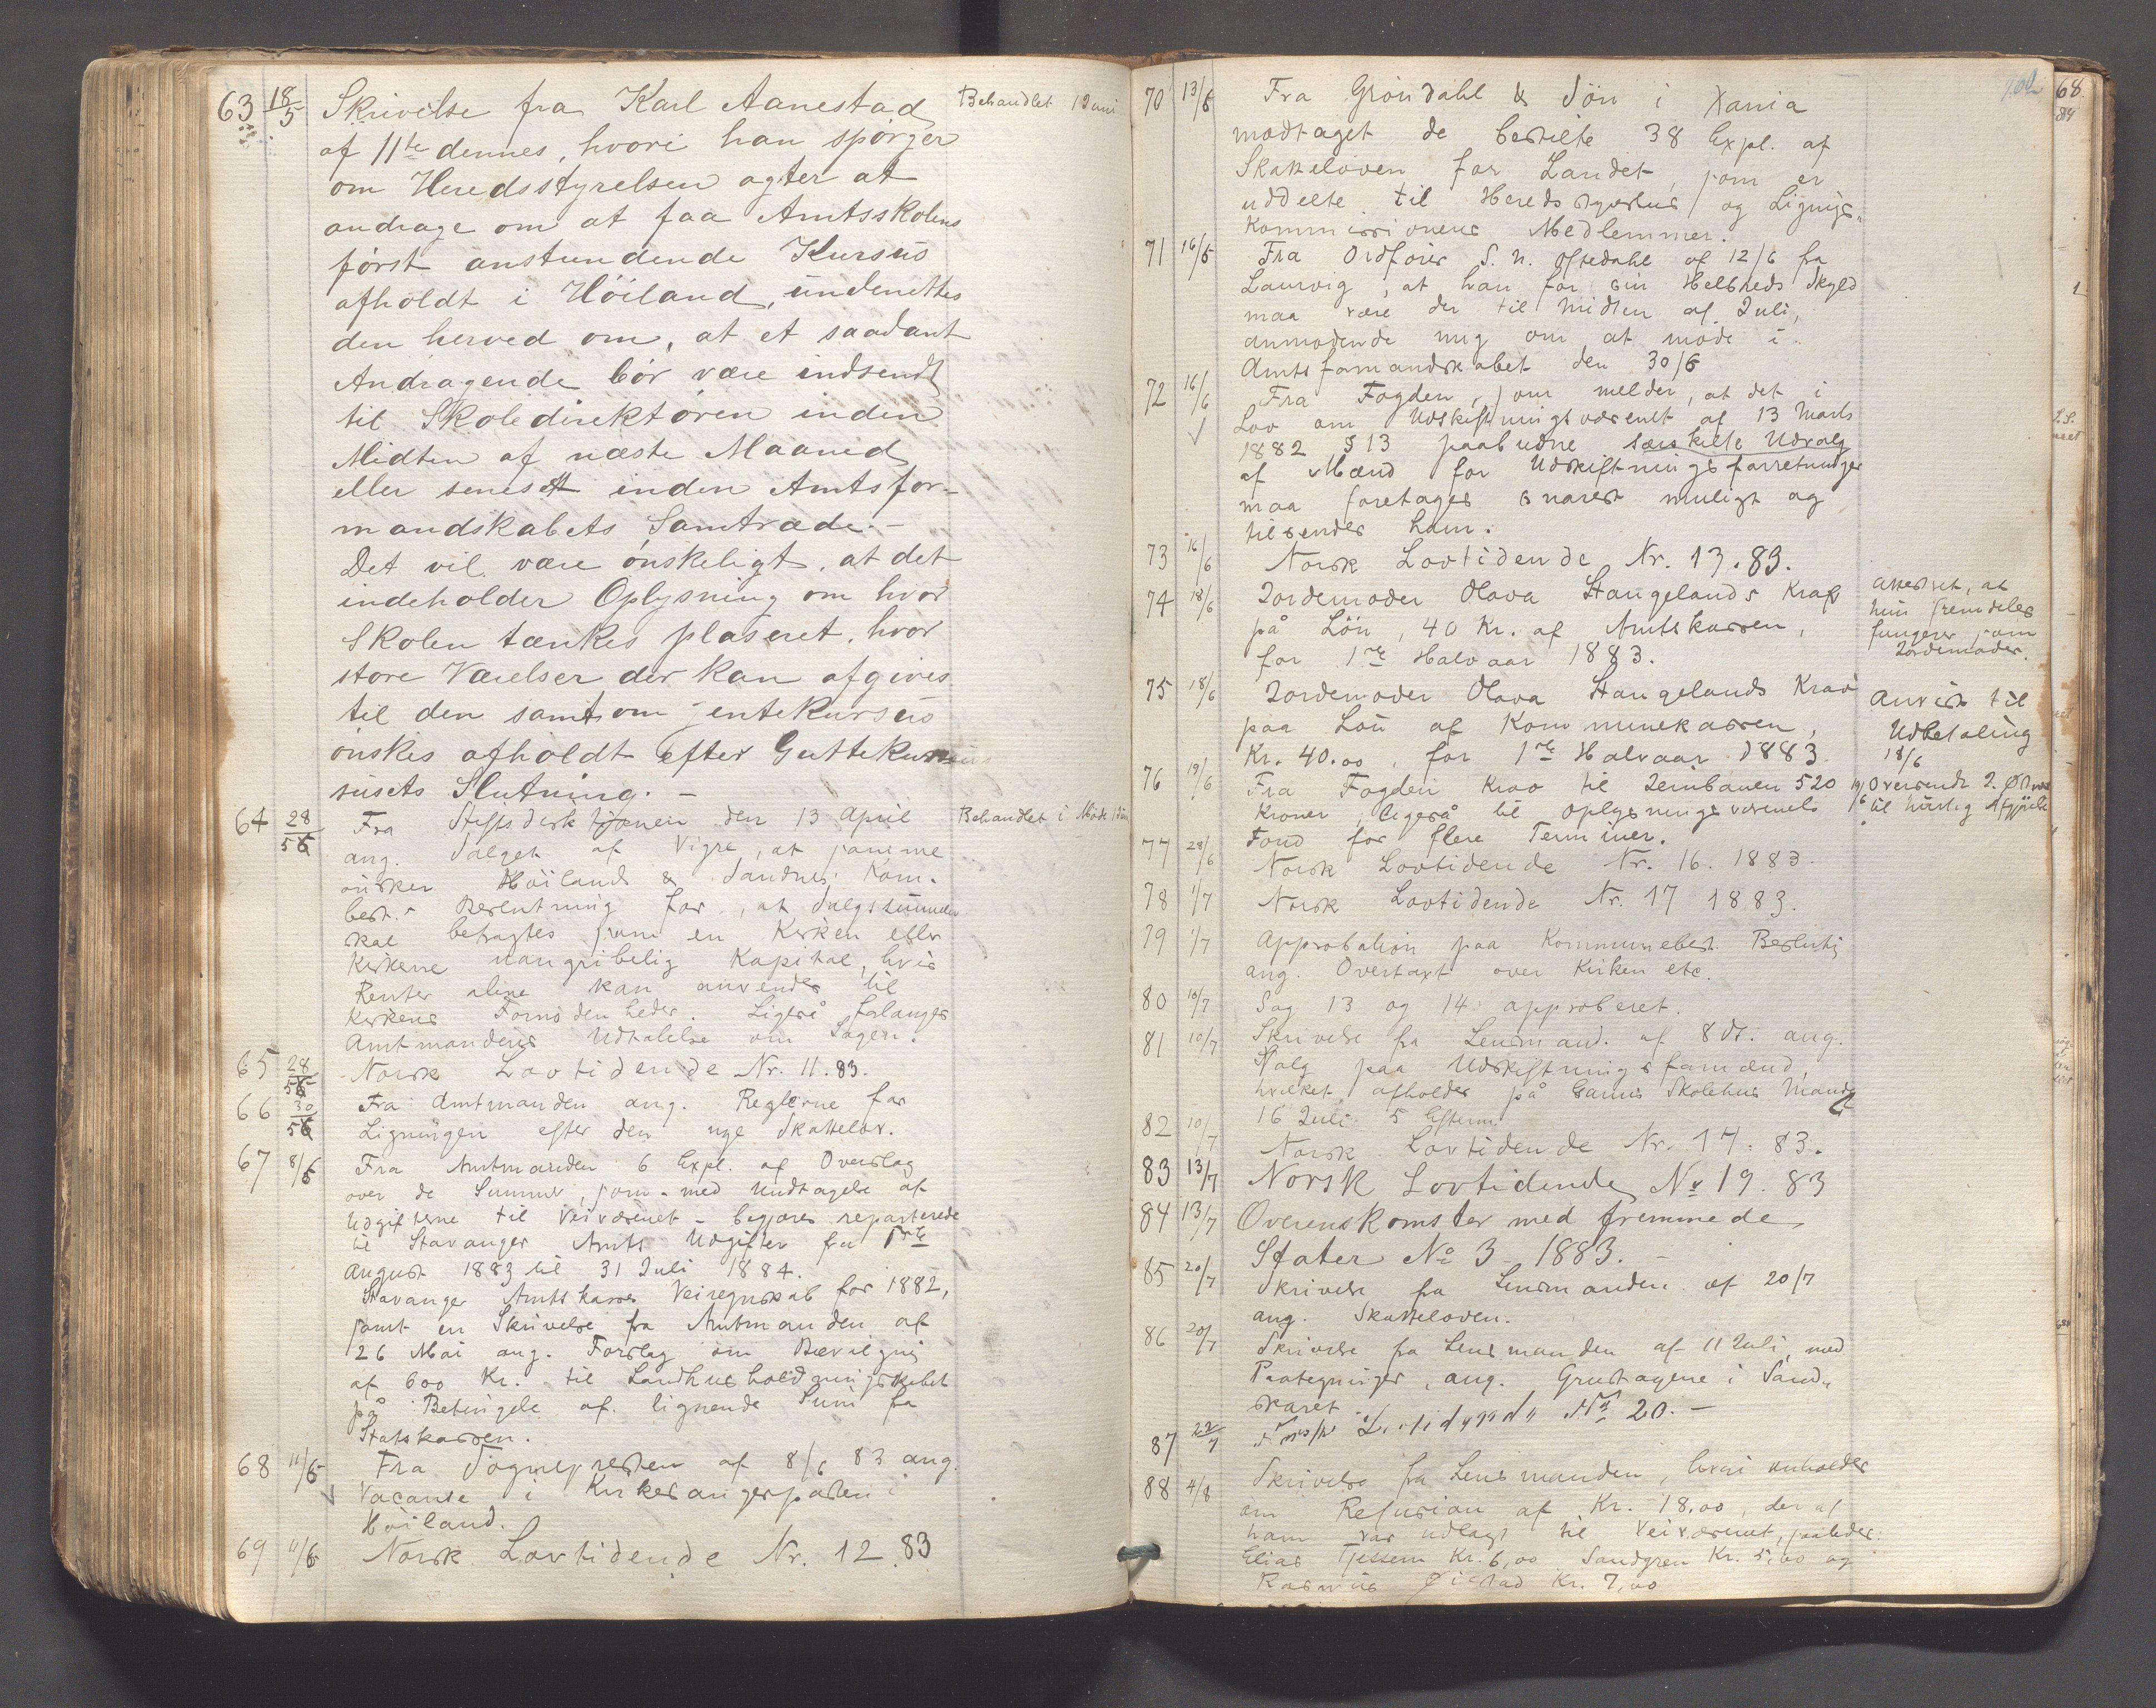 63 18/5 Skrivelse fra Karl Aanestad Behandlet 1 Juni
af 11te dennes, hvori han spørger
om Heredsstyrelsen agter at
andrage om at faa Amtsskolens
først anstundende Kursus
afholdt i Høiland, underrettes
den herved om, at et saadant
Andragende bør være indsendt
til Skoledirektøren inden
Midten af næste Maaned
eller senest inden Amtsfor-
mandskabets Samtræde. -
Det vil være ønskeligt, at det
indeholder Oplysning om hvor
Skolen tænkes plaseret, hvor
store Værelser der kan afgives
til den samt om jentekursus
ønskes afholdt efter Guttekur
susets Slutning. -
64 28/5 Fra Stiftsdirektionen den 13 April Behandlet i Møde 1 Juni
ang. Salget af Vigre, at samme
ønsker Høilands & Sandnes Kom.
best.s Beslutning for, at Salgssummen
skal betragtes som en Kirken eller
Kirkerne uangribelig Kapital, hvis
Renter alene kan anvendes til
Kirkens Fornødenheder. Ligeså forlanges
Amtmandens Udtalelse om Sagen.
65 28/5 Norsk Lovtidende Nr. 11. 83.
66 30/5 Fra Amtmanden ang. Reglerne for
Ligningen efter den nye Skattelov.
67 8/6 Fra Amtmanden 6 Expl. af Overslag
over de Summer, som - med Undtagelse af
Udgifterne til Veivæsenet - begjæres reparterede
til Stavanger Amts Udgifter fra 1ste
August 1883 til 31 Juli 1884.
Stavanger Amtskasses Veiregnskab for 1882,
samt en Skrivelse fra Amtmanden af
26 Mai ang. Forslag om Bevilgnig
af 600 Kr. til Landhusholdningsskabet
på Betingelse af lignende Sum fra
Statskassen.
68 11/6 Fra Sognepresten af 8/6 83 ang.
Vacanse i Kirkesangerposten i
Høiland.
69 11/6 Norsk Lovtidende Nr. 12. 83
102
70 13/6 Fra Grøndahl & Søn i Xania
modtaget de bestilte 38 Expl. af
Skatteloven for Landet, som er
uddelte til Heredsstyrelsens og Lignigs-
Kommissionens Medlemmer.
71 16/6 Fra Ordfører S. N. Oftedahl af 12/6 fra
Laurvig, at han for sin Helbreds Skyld
maa være der til Midten af Juli,
anmodende mig om at møde i
Amtsformandskabet den 30/6
72 16/6 Fra Fogden, som melder, at det i
Lov om Udskiftningsvæsenet af 13 Marts
1882 § 13 paabudne særskilte Udvalg
af Mænd for Udskiftningsforretninger
maa foretages snarest muligt og
tilsendes ham.
73 16/6 Norsk Lovtidende Nr. 13. 83.
74 18/6 Jordemoder Olava Stangelands Krav
på Løn, 40 Kr. af Amtskassen,
for 1ste Halvaar 1883.
attesteret, at
hun fremdeles
fungerer som
Jordemoder.
75 18/6 Jordemoder Olava Stangelands Krav
paa Løn af Kommunekassen,
Kr. 40.00, for 1ste Halvaar 1883.
Anvist til
Udbetaling
18/6
76 19/6 Fra Fogden Krav til Jernbanen 520
Kroner, ligeså til Oplysningsvæsenets
Fond for flere Terminer.
19/6 Oversendt
til hurtig Afgjørelse
77 28/6 Norsk Lovtidende Nr. 16. 1883.
78 1/7 Norsk Lovtidende Nr. 17 1883.
79 1/7 Approbation paa Kommunebest. Beslutn
ang. Overtaxt over Kirken etc.
80 10/7 Sag 13 og 14 approberet.
81 10/7 Skrivelse fra Lensmand. af 8 ds. ang.
Valg paa Udskiftningsformænd,
hvilket afholdes på Gamis Skolehus Mandg
16 Juli 5 Efterm.
82 10/7 Norsk Lovtidende Nr. 17. 83.
83 13/7 Norsk Lovtidende Nr 19. 83
84 13/7 Overenskomster med fremmede
Stater No 3 - 1883. -
85 20/7 Skrivelse fra Lensmanden af 20/7
ang. Skatteloven.
86 20/7 Skrivelse fra Lensmanden af 11 Juli, med
Paategninger, ang. Grustagene i Sand-
skaret.
87 22/7 Norsk Lovtidende Nr 20. -
88 4/8 Skrivelse fra Lensmanden, hvori anholdes
om Refusion af Kr. 18,00, der af
ham var udlagt til Veivæsenet, saaledes:
Elias Tjessem Kr. 6,00 Sandgren Kr. 5,00 og
Rasmus Øistad Kr. 7,00
68.